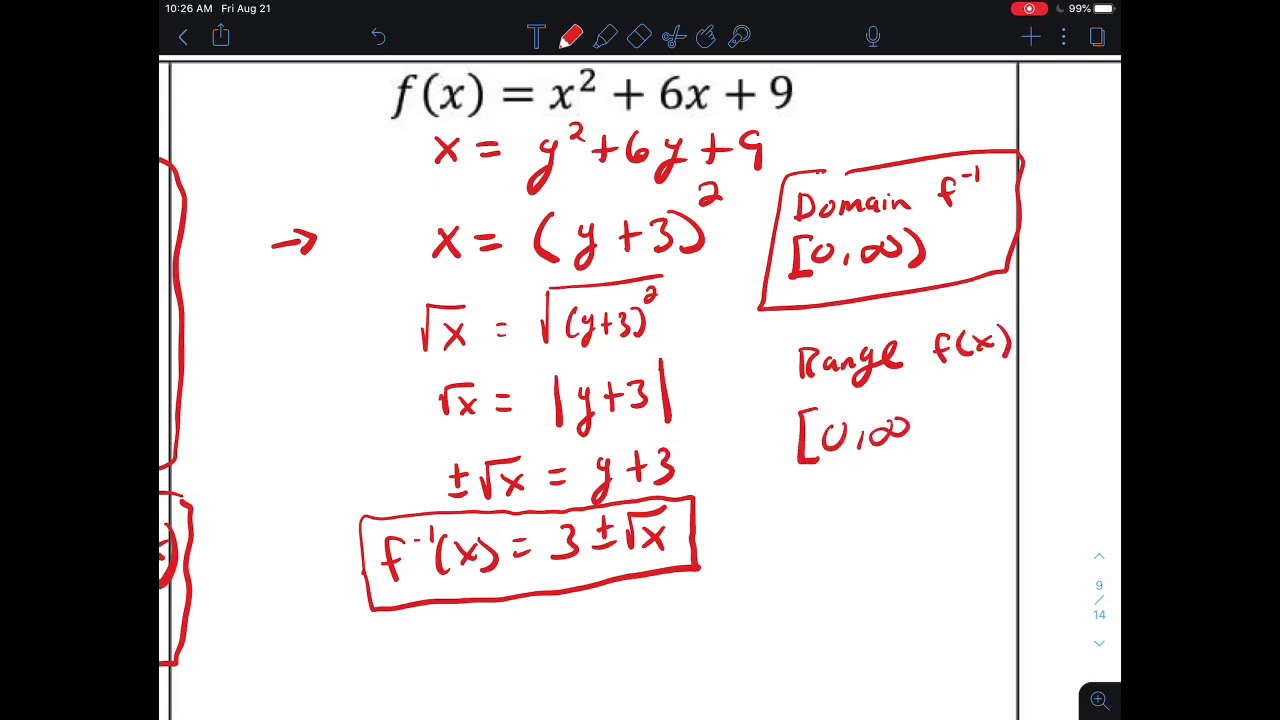 10:26 AM Fri Aug 21
99%
T
f(x) = x² + 6x + 9
x = y² + 6y + 9
→ x = (y + 3)²
√x = √(y+3)²
√x = |y+3|
±√x = y + 3
f⁻¹(x) = 3 ± √x
Domain f⁻¹
[0, ∞)
Range f(x)
[0, ∞
9
/
14